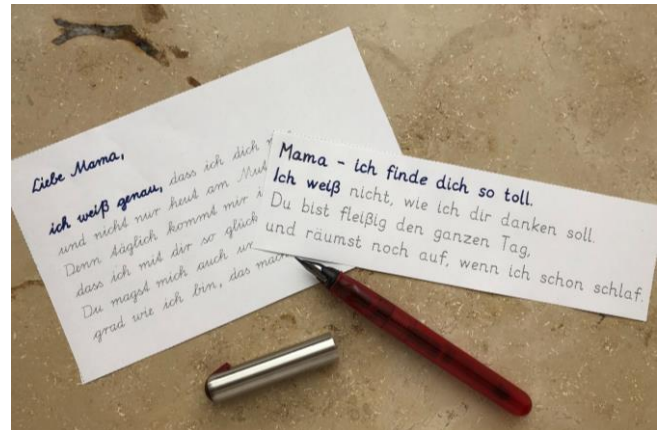 Liebe Mama,
ich weiß genau, dass ich dich
und nicht nur heut am
Denn täglich kommt mir
dass ich mit dir so
Du magst mich auch
grad wie ich bin, das
Mama - ich finde dich so toll.
Ich weiß nicht, wie ich dir danken soll.
Du bist fleißig den ganzen Tag,
und räumst noch auf, wenn ich schon schlaf.